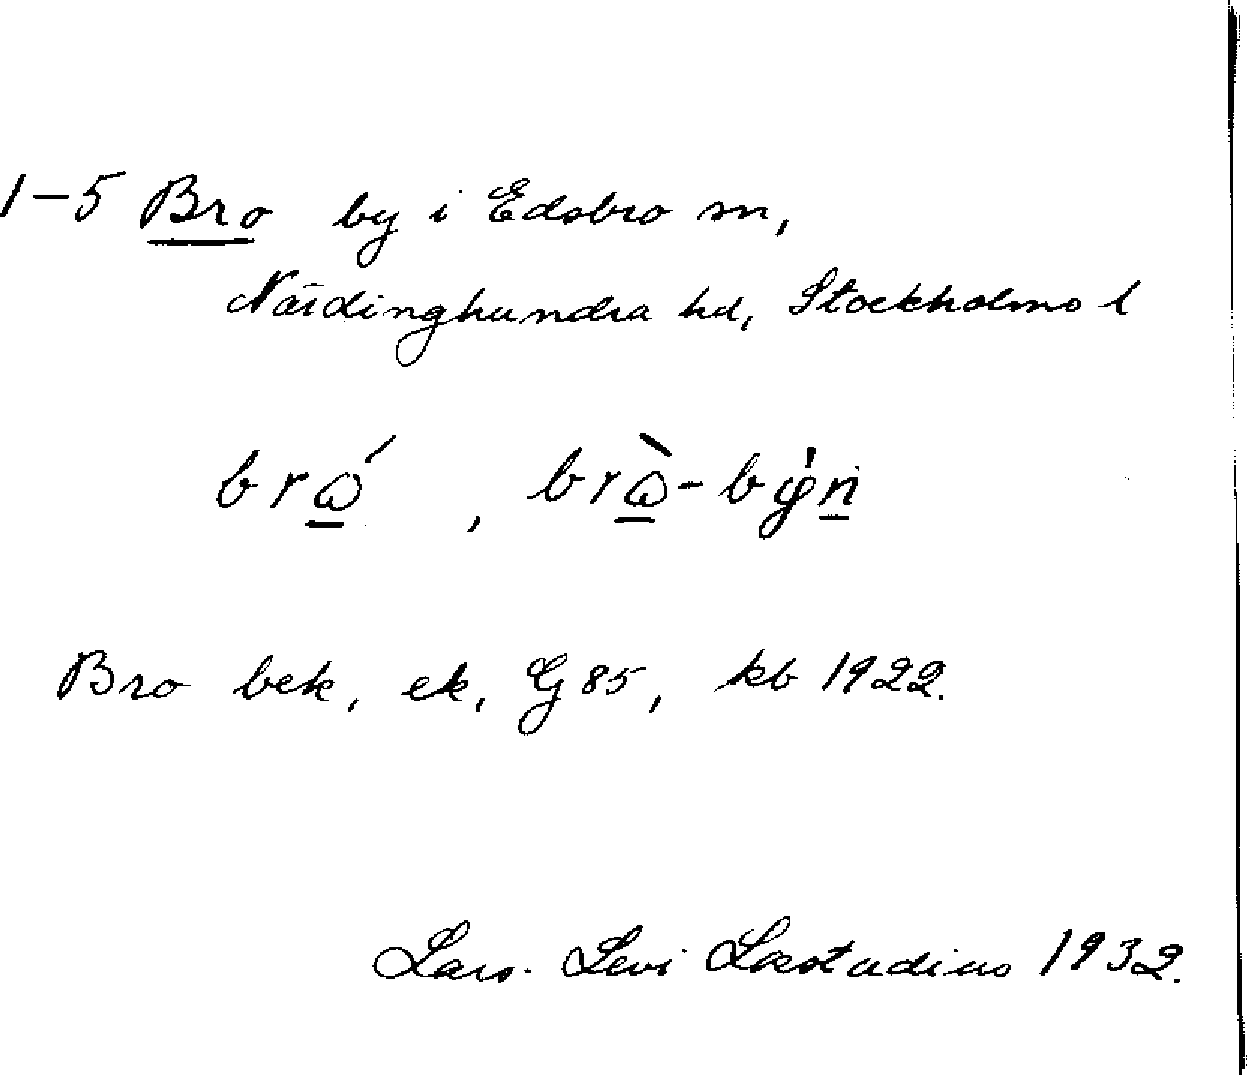 1–5 Bro by i Edsbro sn,
Närdinghundra hd, Stockholms l
brώ, brὼ-bẏn
Bro bek, ek, G 85, kb 1922.
Lars. Levi Læstadius 1932.